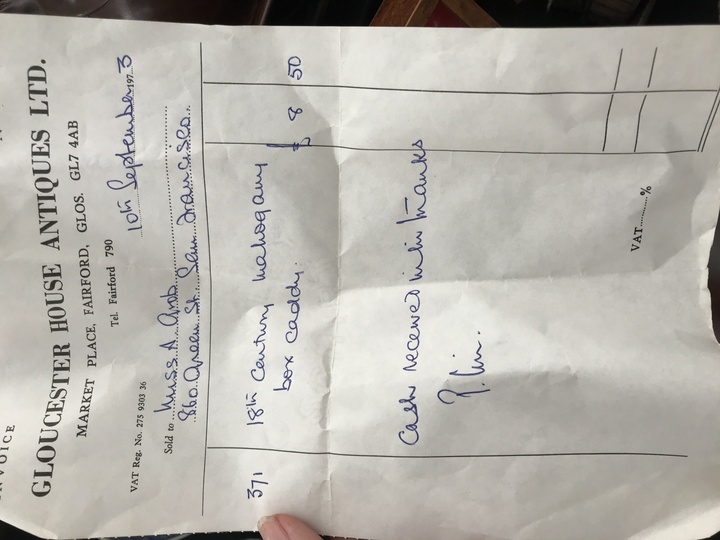 INVOICE
GLOUCESTER HOUSE ANTIQUES LTD.
MARKET PLACE, FAIRFORD, GLOS. GL7 4AB
Tel. Fairford 790
10th September 197 3
VAT Reg. No. 275 9303 36
Sold to Miss A Grob
860 Green St. San Francisco
371 18th Century Mahogany £ 8 50
box caddy.
Cash received with thanks
VAT............%